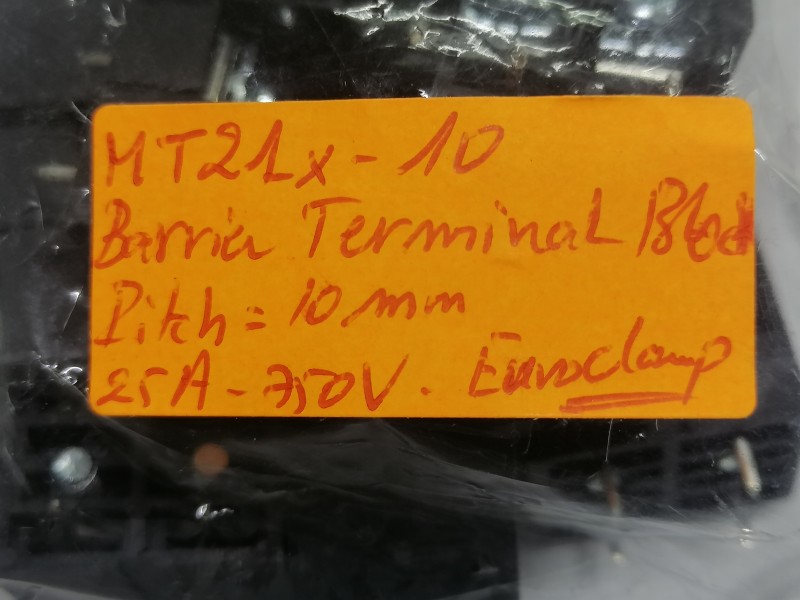 MT21x-10
Barrier Terminal Block
Pitch = 10 mm
25A - 750V. Euroclamp